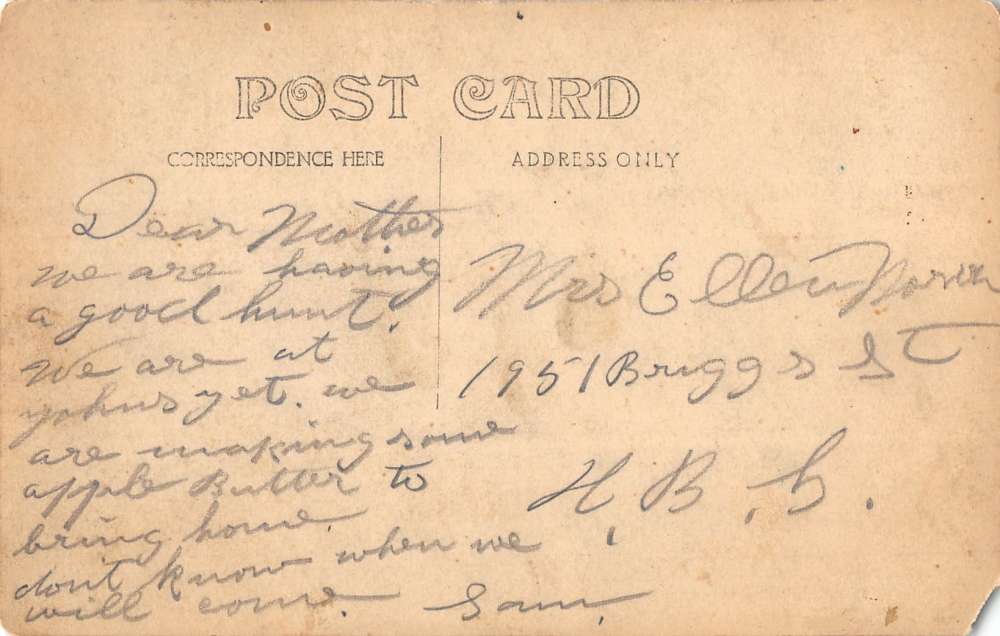 POST CARD
CORRESPONDENCE HERE
ADDRESS ONLY
Dear Mother
we are having
a good hunt.
We are at
yohns yet. we
are making some
apple Butter to
bring home
dont know when we
will come. Sam
Mrs Ellen
1951 Briggs St
H. B. G.